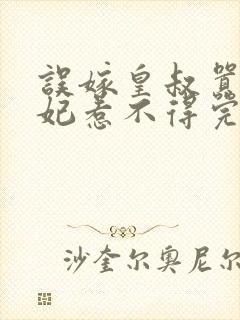 誤嫁皇叔囂
妃惹不得完
沙奎尔奥尼尔